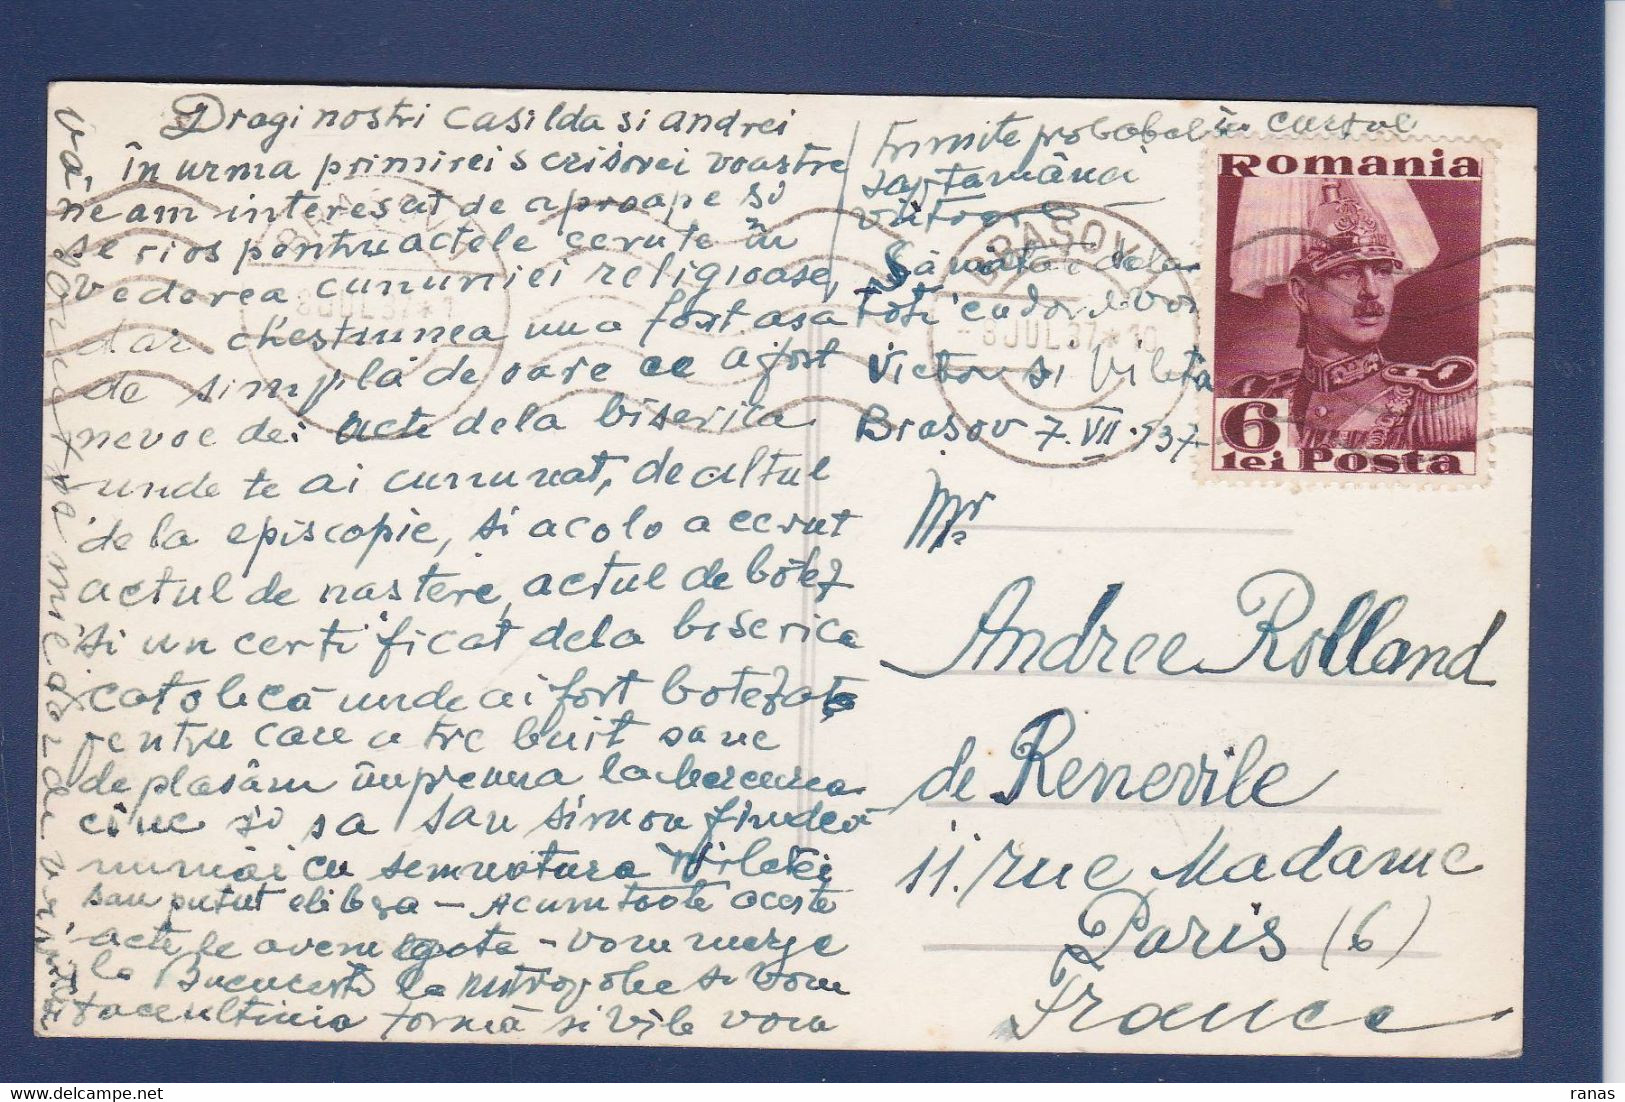 Dragi nostri Casilda si andrei
în urma primirei scrisorei voastre
ne am interesat de aproape si
serios pentru actele cerute în
vederea cununiei religioase,
dar chestiunea nu a fost asa
de simplă de oare ce a fost
nevoe de acte dela biserica
unde te ai cununat, de altul
de la episcopie, si acolo a cerut
actul de nastere, actul de botez
si un certificat dela biserica
catolică unde ai fost botezat
pentru care a tre buit sa ne
de plasăm împreuna la
cinc si sa sau simon fiindcă
numai cu semnatura Viletei
sau putut elibera - Acum toate aceste
acte le avem gata - vom merge
la Bucuresti la mitropolie si vom
face ultima formă si vi le vom
trimite probabil în cursul
saptamânei
viitoare
Sănătate dela
toti cu dor de voi
Victor si Vileta
Brasov 7.VII.937
va
BRASOV
8 JUL 37 * 1
BRASOV
8 JUL 37 * 10
Romania
6
lei Posta
Mr
Andree Rolland
de Renevile
11. rue Madame
Paris (6)
France
ranas